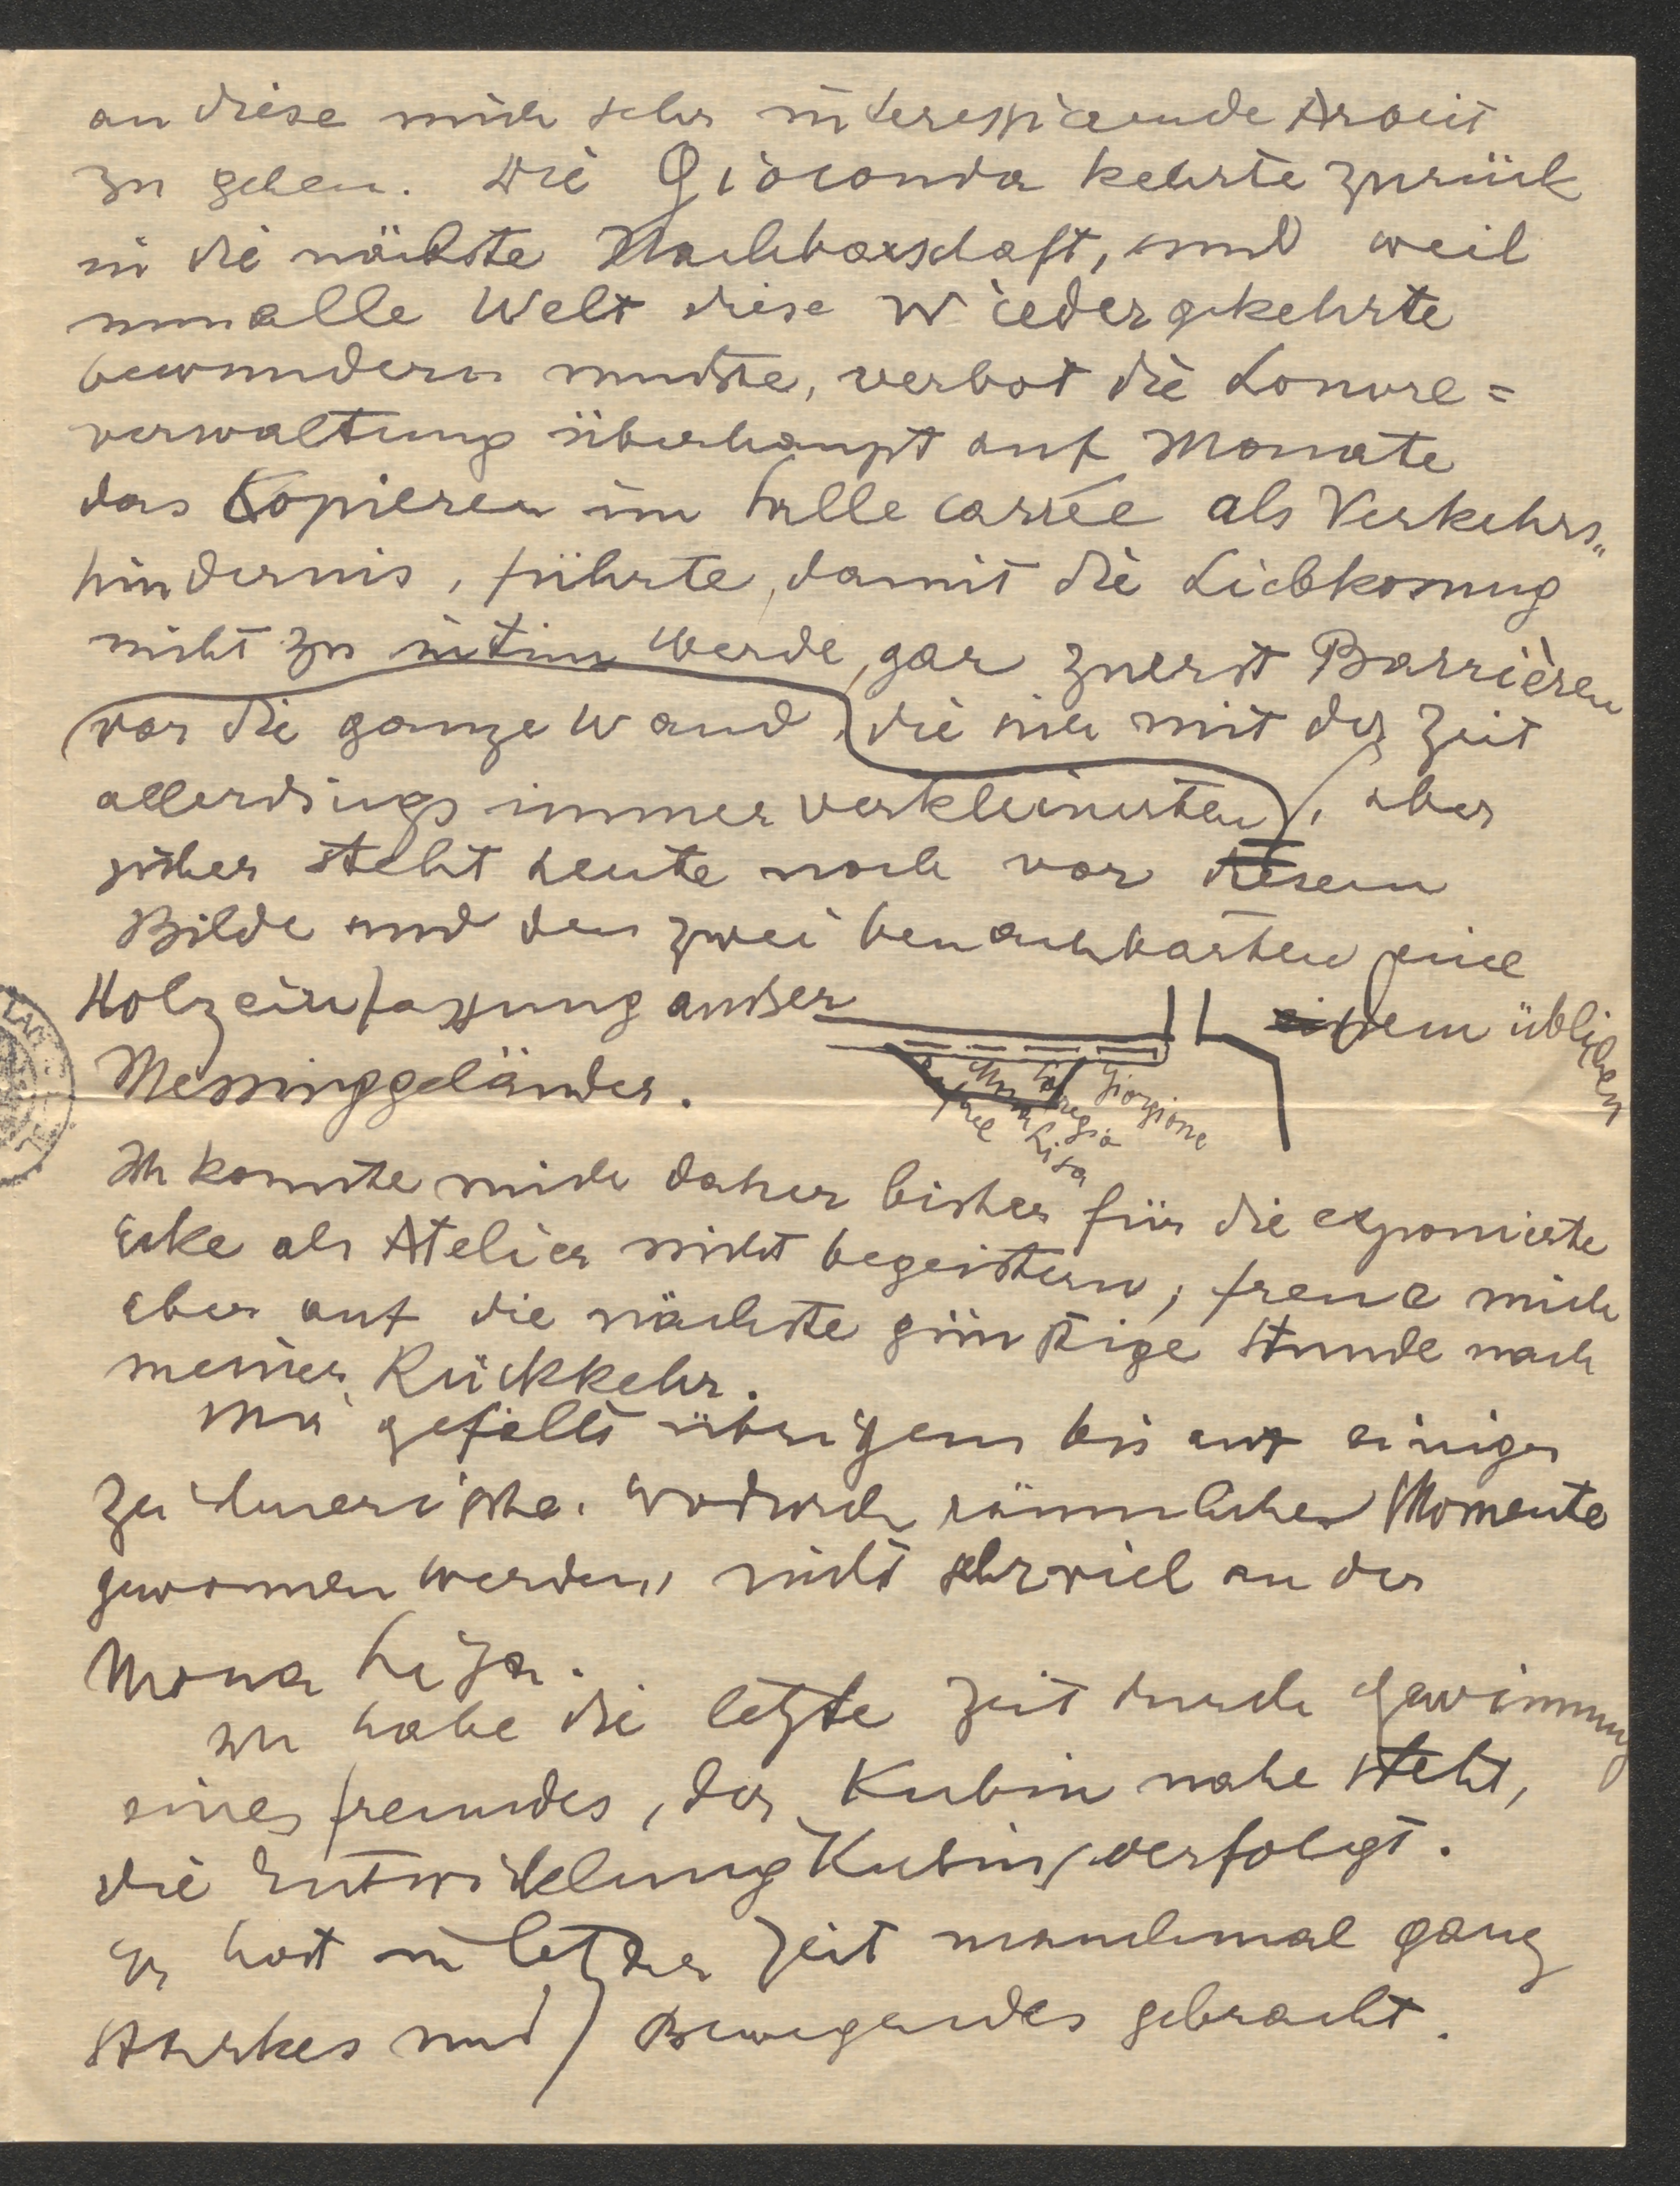 an diese mich sehr interessierende Arbeit
zu gehen. Die Gioconda kehrte zurück
in die nächste Nachbarschaft, und weil
nun alle Welt diese Wiedergekehrte
bewundern musste, verbot die Louvre=
verwaltung überhaupt auf Monate
das Kopieren im Salle carrée als Verkehrs"
hindernis, führte, damit die Liebkosung
nicht zu intim werde, gar zuerst Barrièren
vor die ganze Wand, die sich mit der Zeit
allerdings immer verkleinerten, aber
sicher steht heute noch vor diesem
Bilde und den zwei benachbarten eine
Holzeinfassung ausser dem üblichen
Messinggeländer.
Rafael Mona Lisa Corregio Giorgione
Ich konnte mich daher bisher für die exponierte
Ecke als Atelier nicht begeistern, freue mich
aber auf die nächste günstige Stunde nach
meiner Rückkehr.
Mir gefällts übrigens bis auf einige
zeichnerische. wodurch räumliche Momente
gewonnen werden, nicht sehr viel an der
Mona Lisa.
Ich habe die letzte Zeit durch Gewinnung
eines Freundes, der Kubin nahe steht,
die Entwicklung Kubins verfolgt.
Er hat in letzter Zeit manchmal ganz
Starkes und Bewegendes gebracht.